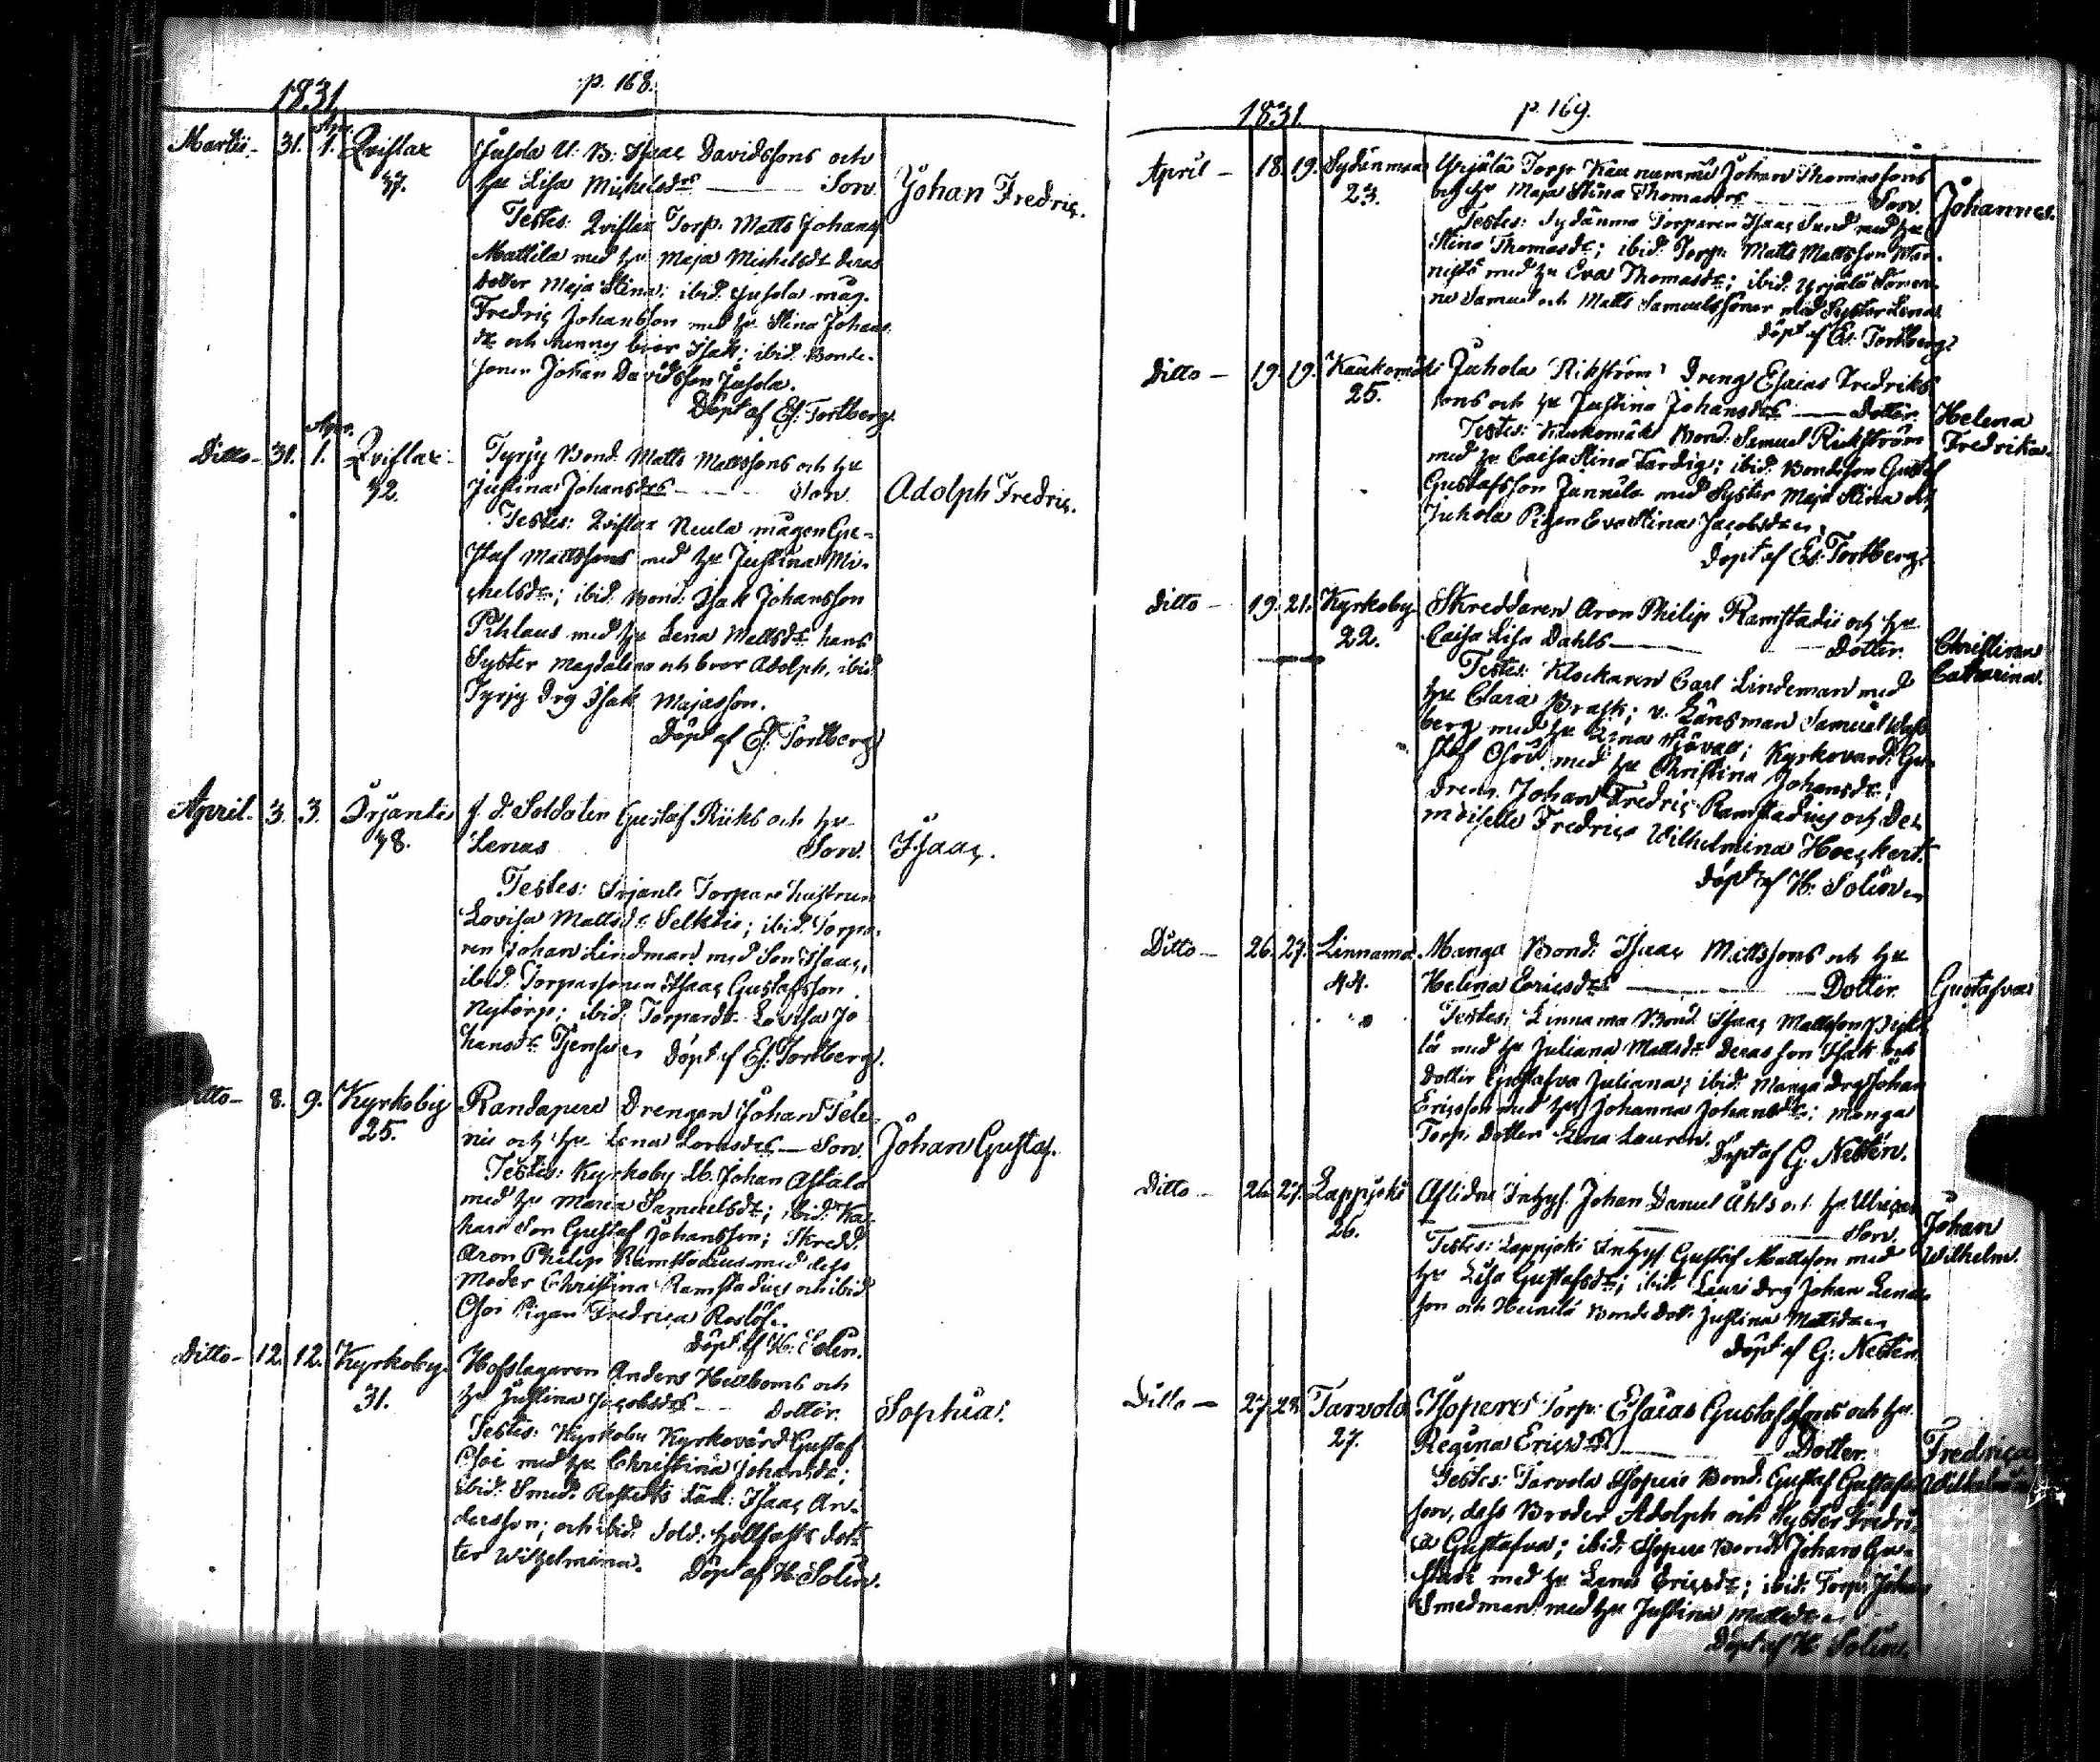 1831. p. 168.
Martii - 31. Apr. 1. Qviflax 37.
Juhola U: B: Isaac Davidssons och
hu Lisa Michelsdrs Son. Johan Fredric.
Testes: Qviflax Torp. Matts Johans
Mattila med hu Maja Michelsdr deras
dotter Maja Stina; ibid. Juhola måg.
Fredric Johansson med hu Stina Johans
dr och hennes bror Isak; ibid. Bonde-
sonen Johan Davidsson Juhola.
Döpt af Es: Fortberg.
Ditto - 31. Apr. 1. Qviflax 32.
Tyrjy Bond. Matts Mattssons och hu
Justina Johansdrs Son. Adolph Fredric.
Testes: Qviflax Neula mågen Gu-
staf Mattssons med hu Justina Mi-
chelsdr; ibid. Bond. Isak Johansson
Pihlaus med hu Lena Mattsdr hans
Syster Magdalena och bror Adolph, ibid
Tyrjy drg Isak Majasson.
Döpt af Es: Fortberg
April - 3. 3. Irjanti 38.
f. d. Soldaten Gustaf Riiks och hu
Lenas Son. Isaac.
Testes: Irjanti Torpare hustrun
Lovisa Mattsdr ibid. Torpa-
ren Johan Lindman med Son Isaac,
ibid. Torparesonen Isaac Gustafsson
Nytorp; ibid. Torparedr Lovisa Jo
hansdr Döpt af Es: Fortberg.
Ditto - 8. 9. Kyrkoby 25.
Randapere Drengen Johan Tele-
nii och hu Lena Son. Johan Gustaf.
Testes: Kyrkoby Johan Astala
med hu Maria Samuelsdr; ibid. Ka-
hari Son Gustaf Johansson; Skredd.
Aron Philip Ramstadius med dess
Moder Christina Ramstadius och ibid
Ojoi Pigan Fredrica Roslöf.
Döpt af H: Solin.
Ditto - 12. 12. Kyrkoby 31.
Hofslagaren Anders Hellboms och
hu Justina Jacobsdrs Dotter. Sophia.
Testes: Kyrkoby Kyrkovärd Gustaf
Ojoi med hu Christina Johansdr;
ibid. Smed. Isaac An-
dersson; och ibid. Sold. dot-
ter Wilhelmina. Döpt af H: Solin.
1831. p. 169.
April - 18. 19. Sydänmaa 23.
Yrjälä Torp. Kaunummi Johan Thomassons
och hu Maja Stina Thomasdrs Son. Johannes.
Testes: Sydänma Torparen Isaac Sund med hu
Stina Thomasdr; ibid. Torp. Matts Mattsson Man-
nistö med hu Eva Thomasdr; ibid. Yrjälä Söner-
ne Samuel och Matts Samuelssöner med Syster Lena.
Döpt af Es: Fortberg.
Ditto - 19. 19. Kaukomäki 25.
Juhola Rikström Dreng Esaias Fredriks
sons och hu Justina Johansdrs Dotter. Helena Fredrika.
Testes: Kaukomäki Bond. Samuel Rikström
med hu Caisa Stina Tardig; ibid. Bondeson Gustaf
Gustafsson Junnila med Syster Maja Stina och
Juhola Pigan Eva Stina Jacobsdr.
Döpt af Es: Fortberg.
Ditto - 19. 21. Kyrkoby 22.
Skreddaren Aron Philip Ramstadii och hu
Caisa Lisa Dahls Dotter. Christina Catharina.
Testes: Klockaren Carl Lindeman med
hu Clara Brask; v. Länsman Samuel
berg med hu Kyrkovärd. Gu-
staf Ojoi med hu Christina Johansdr;
Dreng. Johan Fredric Ramstadius och De-
moiselle Fredrica Wilhelmina Hoeckert.
Döpt af H: Solin.
Ditto - 26. 27. Linnama 44.
Manga Bond: Isaac Mattssons och hu
Helena Ericsdrs Dotter. Gustafva
Testes: Linnama Bond. Isaac Mattsson
lä med hu Juliana Mattsdr deras son Isak och
dotter Gustafva Juliana; ibid. Manga drg Johan
Ericsson med hu Johanna Johansdr; Manga
Torp. dotter Lena Lauren. Döpt af G: Nettén.
Ditto - 26. 27. Lappjoki 26.
Aflidne Inhys. Johan Daniel Åhls och hu Ulricas
Son. Johan Wilhelm.
Testes: Lappjoki Inhys. Gustaf Mattsson med
hu Lisa Gustafsdr; ibid. Lauri drg Johan Lenas
son och Heinilä Bonde Dott. Justina Mattsdr
Döpt af G: Nettén
Ditto - 27. 28. Tarvola 27.
Isopere Torp: Esaias Gustafssons och hu
Regina Ericsdrs Dotter. Fredrica Wilhelmina
Testes: Tarvola Isopere Bond. Gustaf Gustafs-
son, dess Broder Adolph och Syster Fredri-
ca Gustafva; ibid. Isopere Bond. Johan Gu-
med hu Lena Ericsdr; ibid. Torp. Johan
Smedman med hu Justina Mattsdr
Döpt af H: Solin.